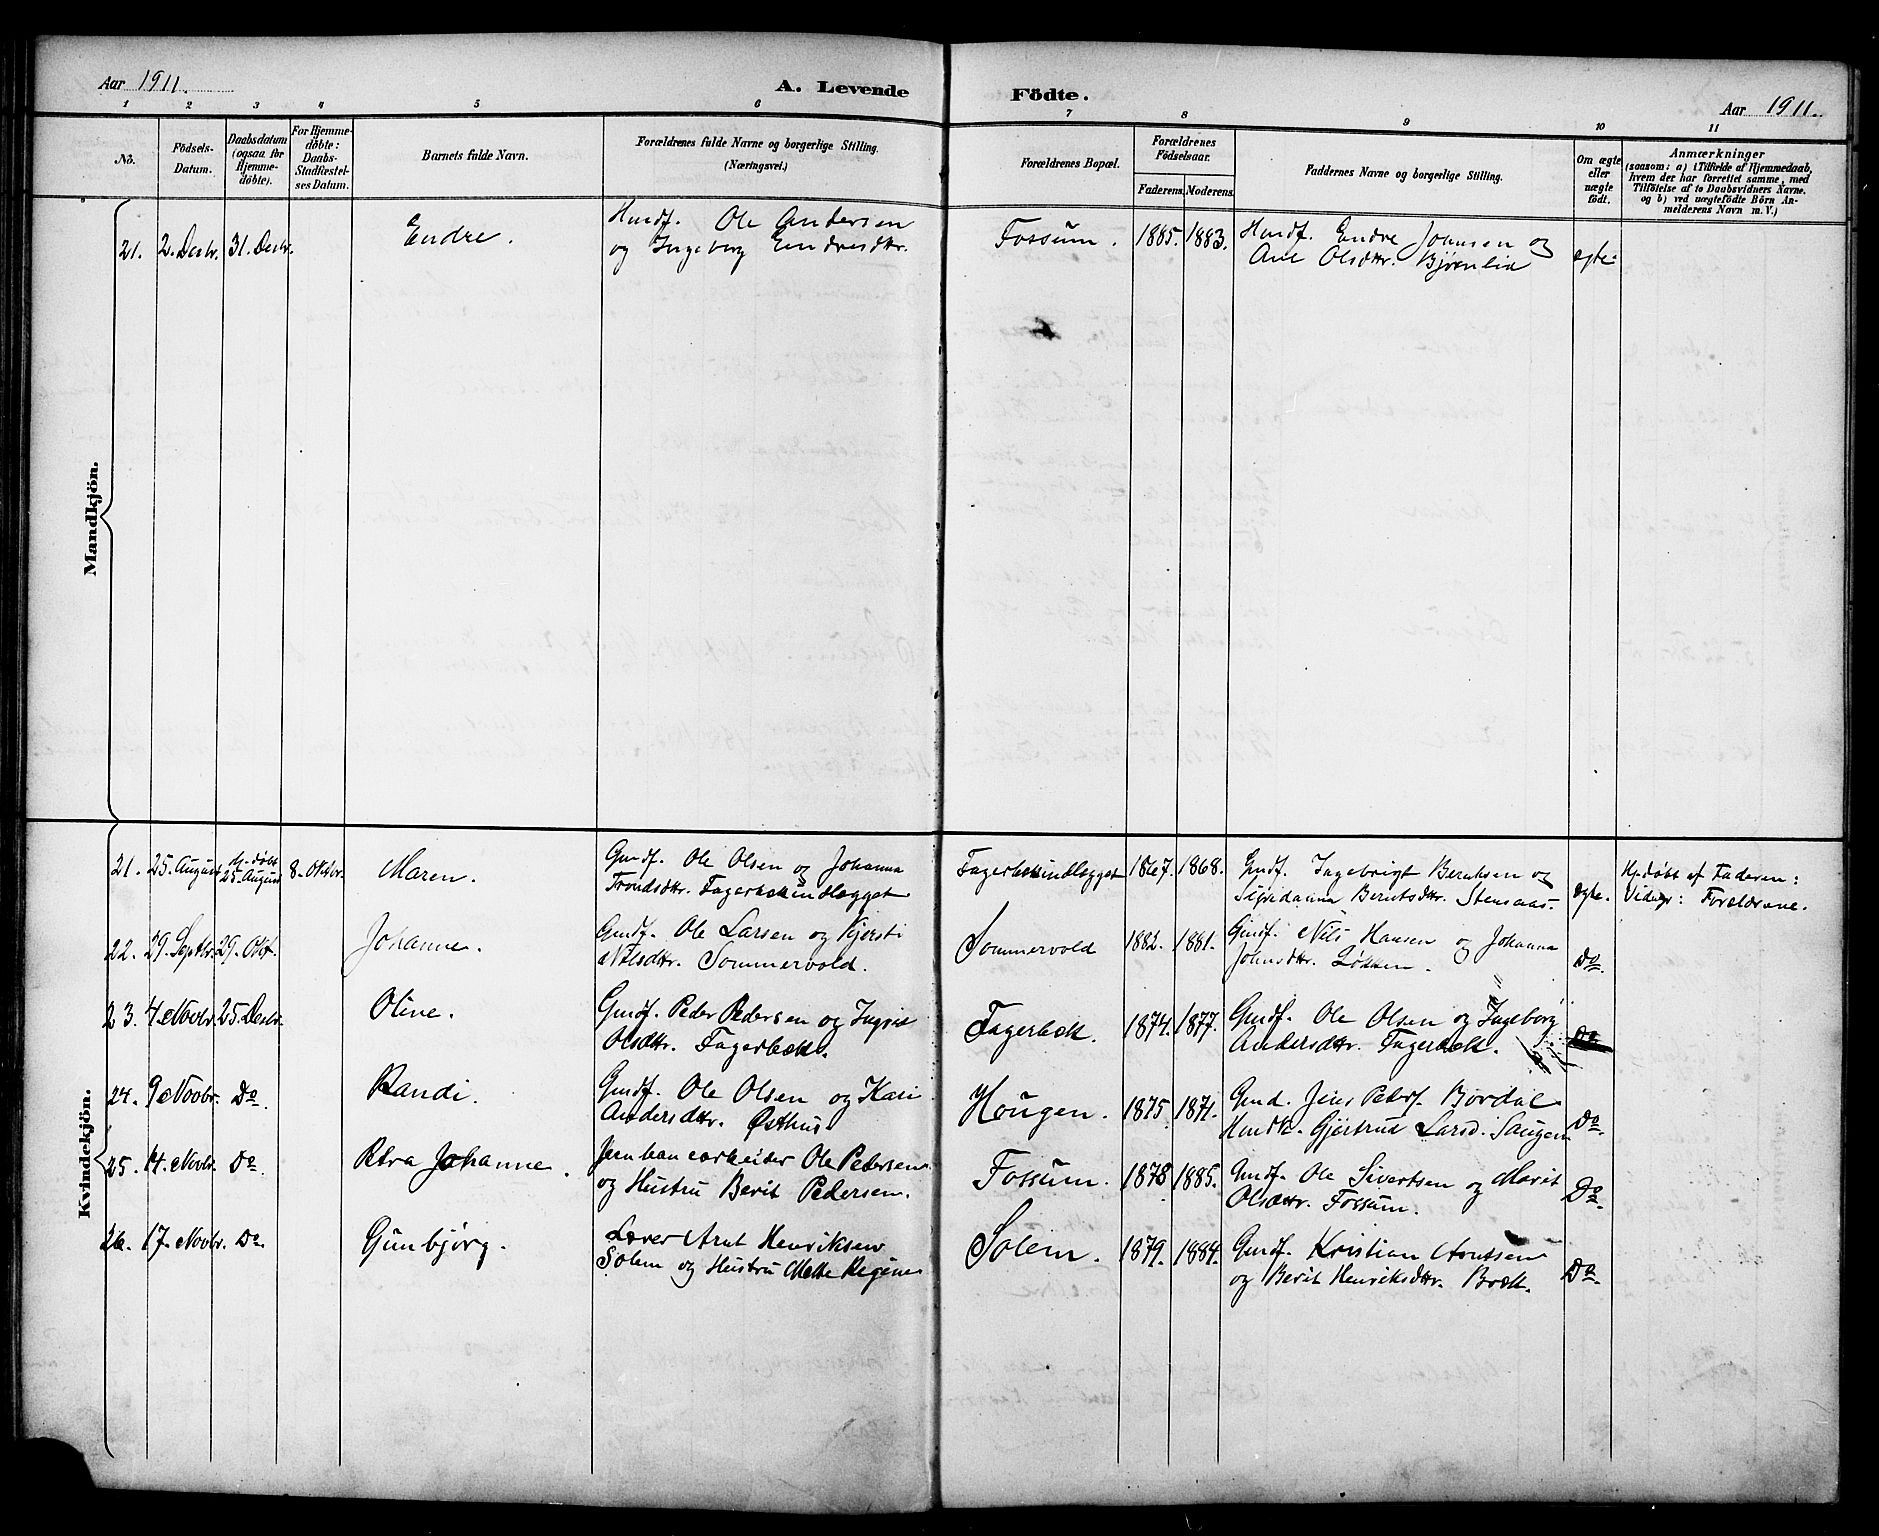 Aar 1911.
A. Levende Födte.
Aar 1911.
1 2 3 4 5 6 7 8 9 10 11
No.
Födsels-
Datum.
Daabsdatum
(ogsaa for
Hjemme-
döbte).
For Hjemme-
döbte:
Daabs-
Stadfæstel-
ses Datum.
Barnets fulde Navn.
Forældrenes fulde Navne og borgerlige Stilling.
(Næringsvei.)
Forældrenes Bopæl.
Forældrenes
Födselsaar.
Faderens. Moderens.
Faddernes Navne og borgerlige Stilling.
Om ægte
eller
uægte
födt.
Anmærkninger
(saasom: a) i Tilfælde af Hjemmedaab,
hvem der har forrettet samme, med
Tilföielse af to Daabsvidners Navne.
og b) ved uægtefödte Börn An-
melderens Navn m. V.)
Mandkjön.
21. 2. Desbr. 31. Desbr. Endre.
Husf. Ole Andersen
og Ingeborg Endresdtr.
Fossum. 1885. 1883.
Husf. Endre Johnsen og
Ane Olsdtr. Bjørnlid
egte.
Kvindekjön.
21. 25. August
Hj. døbt
25. August
8. Oktbr. Maren.
Gmdf. Ole Olsen og Johanna
Trondsdtr. Fagerbekkindlægget
Fagerbekkindlægget 1867. 1868.
Gmdf. Ingebrigt Berntsen og
Sigridanna Berntsdtr. Stensaas.
egte.
Hj.døbt af Faderen:
Vidner: Forældrene.
22. 29. Septbr. 29. Okt. Johanne.
Gmdf. Ole Larsen og Kjersti
Nilsdtr. Sommervold.
Sommervold 1882. 1881.
Gmdf. Nils Hansen og Johanna
Johnsdtr. Løkken.
Do.
23. 4. Novbr. 25. Desbr. Oline.
Gmdf. Peder Pedersen og Ingrid
Olsdtr. Fagerbekk.
Fagerbekk. 1874. 1877.
Gmdf. Ole Olsen og Ingeborg
Andersdtr. Fagerbekk.
Do
24. 9. Novbr. Do. Randi.
Gmdf. Ole Olsen og Kari
Andersdtr. Østhus.
Hougen. 1875. 1871.
Gmd. Jens Peders. Bordal
Husk. Gjertrud Larsd. Haugen
Do.
25. 14. Novbr. Do. Petra Johanne.
Jernbanearbeider Ole Pedersen
og Hustru Berit Pedersen.
Fossum. 1878. 1885.
Gmdf. Ole Sivertsen og Marit
Olsdtr. Fossum.
Do.
26. 17. Novbr. Do. Gunbjørg.
Lærer Arnt Henriksen
Solem og Hustru Mette Regine
Solem. 1879. 1884.
Gmdf. Kristian Arntsen
og Berit Henriksdtr. Bræk.
Do.